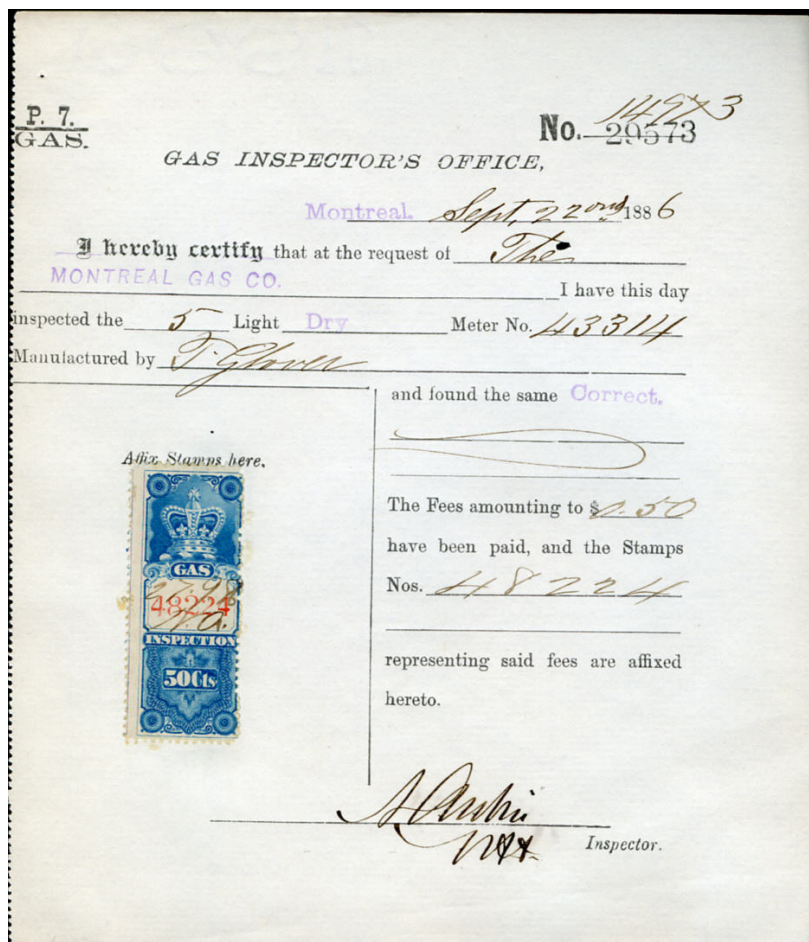 P. 7.
GAS.
14973
No. 29573
GAS INSPECTOR'S OFFICE,
Montreal. Sept, 22nd 1886
I hereby certify that at the request of The
MONTREAL GAS CO.
I have this day
inspected the 5 Light Dry Meter No. 43314
Manufactured by T. Glover
and found the same Correct.
Affix Stamps here.
The Fees amounting to $0.50
have been paid, and the Stamps
Nos. 48224
representing said fees are affixed
hereto.
GAS
48224
INSPECTION
50Cts
A Aubin
Inspector.